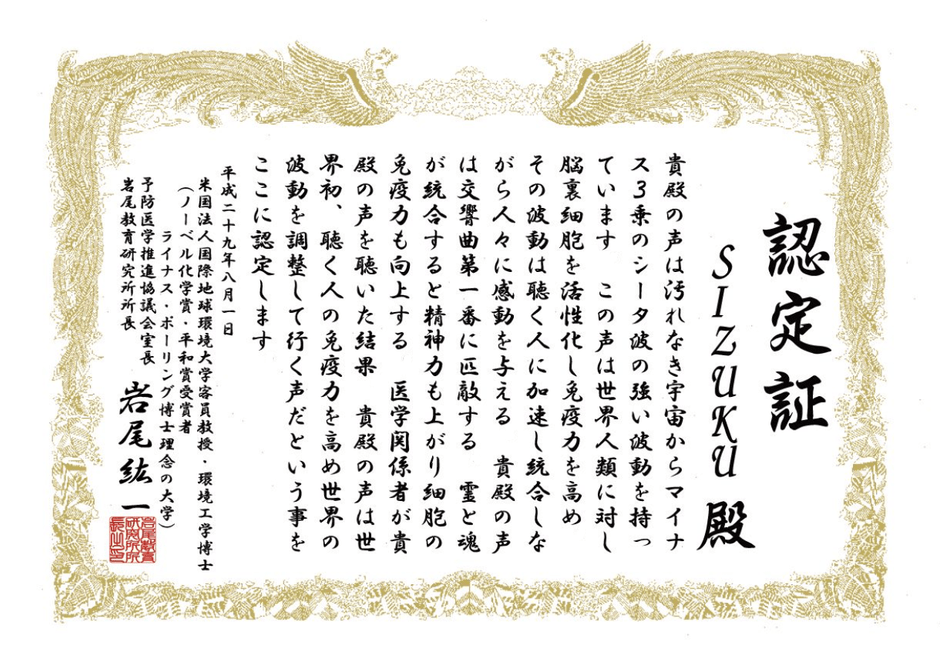 認定証
SIZUKU 殿
貴殿の声は汚れなき宇宙からマイナ
ス3乗のシータ波の強い波動を持っ
ています　この声は世界人類に対し
脳裏細胞を活性化し免疫力を高め
その波動は聴く人に加速し統合しな
がら人々に感動を与える　貴殿の声
は交響曲第一番に匹敵する　霊と魂
が統合すると精神力も上がり細胞の
免疫力も向上する　医学関係者が貴
殿の声を聴いた結果　貴殿の声は世
界初、聴く人の免疫力を高め世界の
波動を調整して行く声だという事を
ここに認定します
平成二十九年八月一日
米国法人国際地球環境大学客員教授・環境工学博士
（ノーベル化学賞・平和賞受賞者
ライナス・ポーリング博士理念の大学）
予防医学推進協議会室長
岩尾教育研究所所長
岩尾紘一